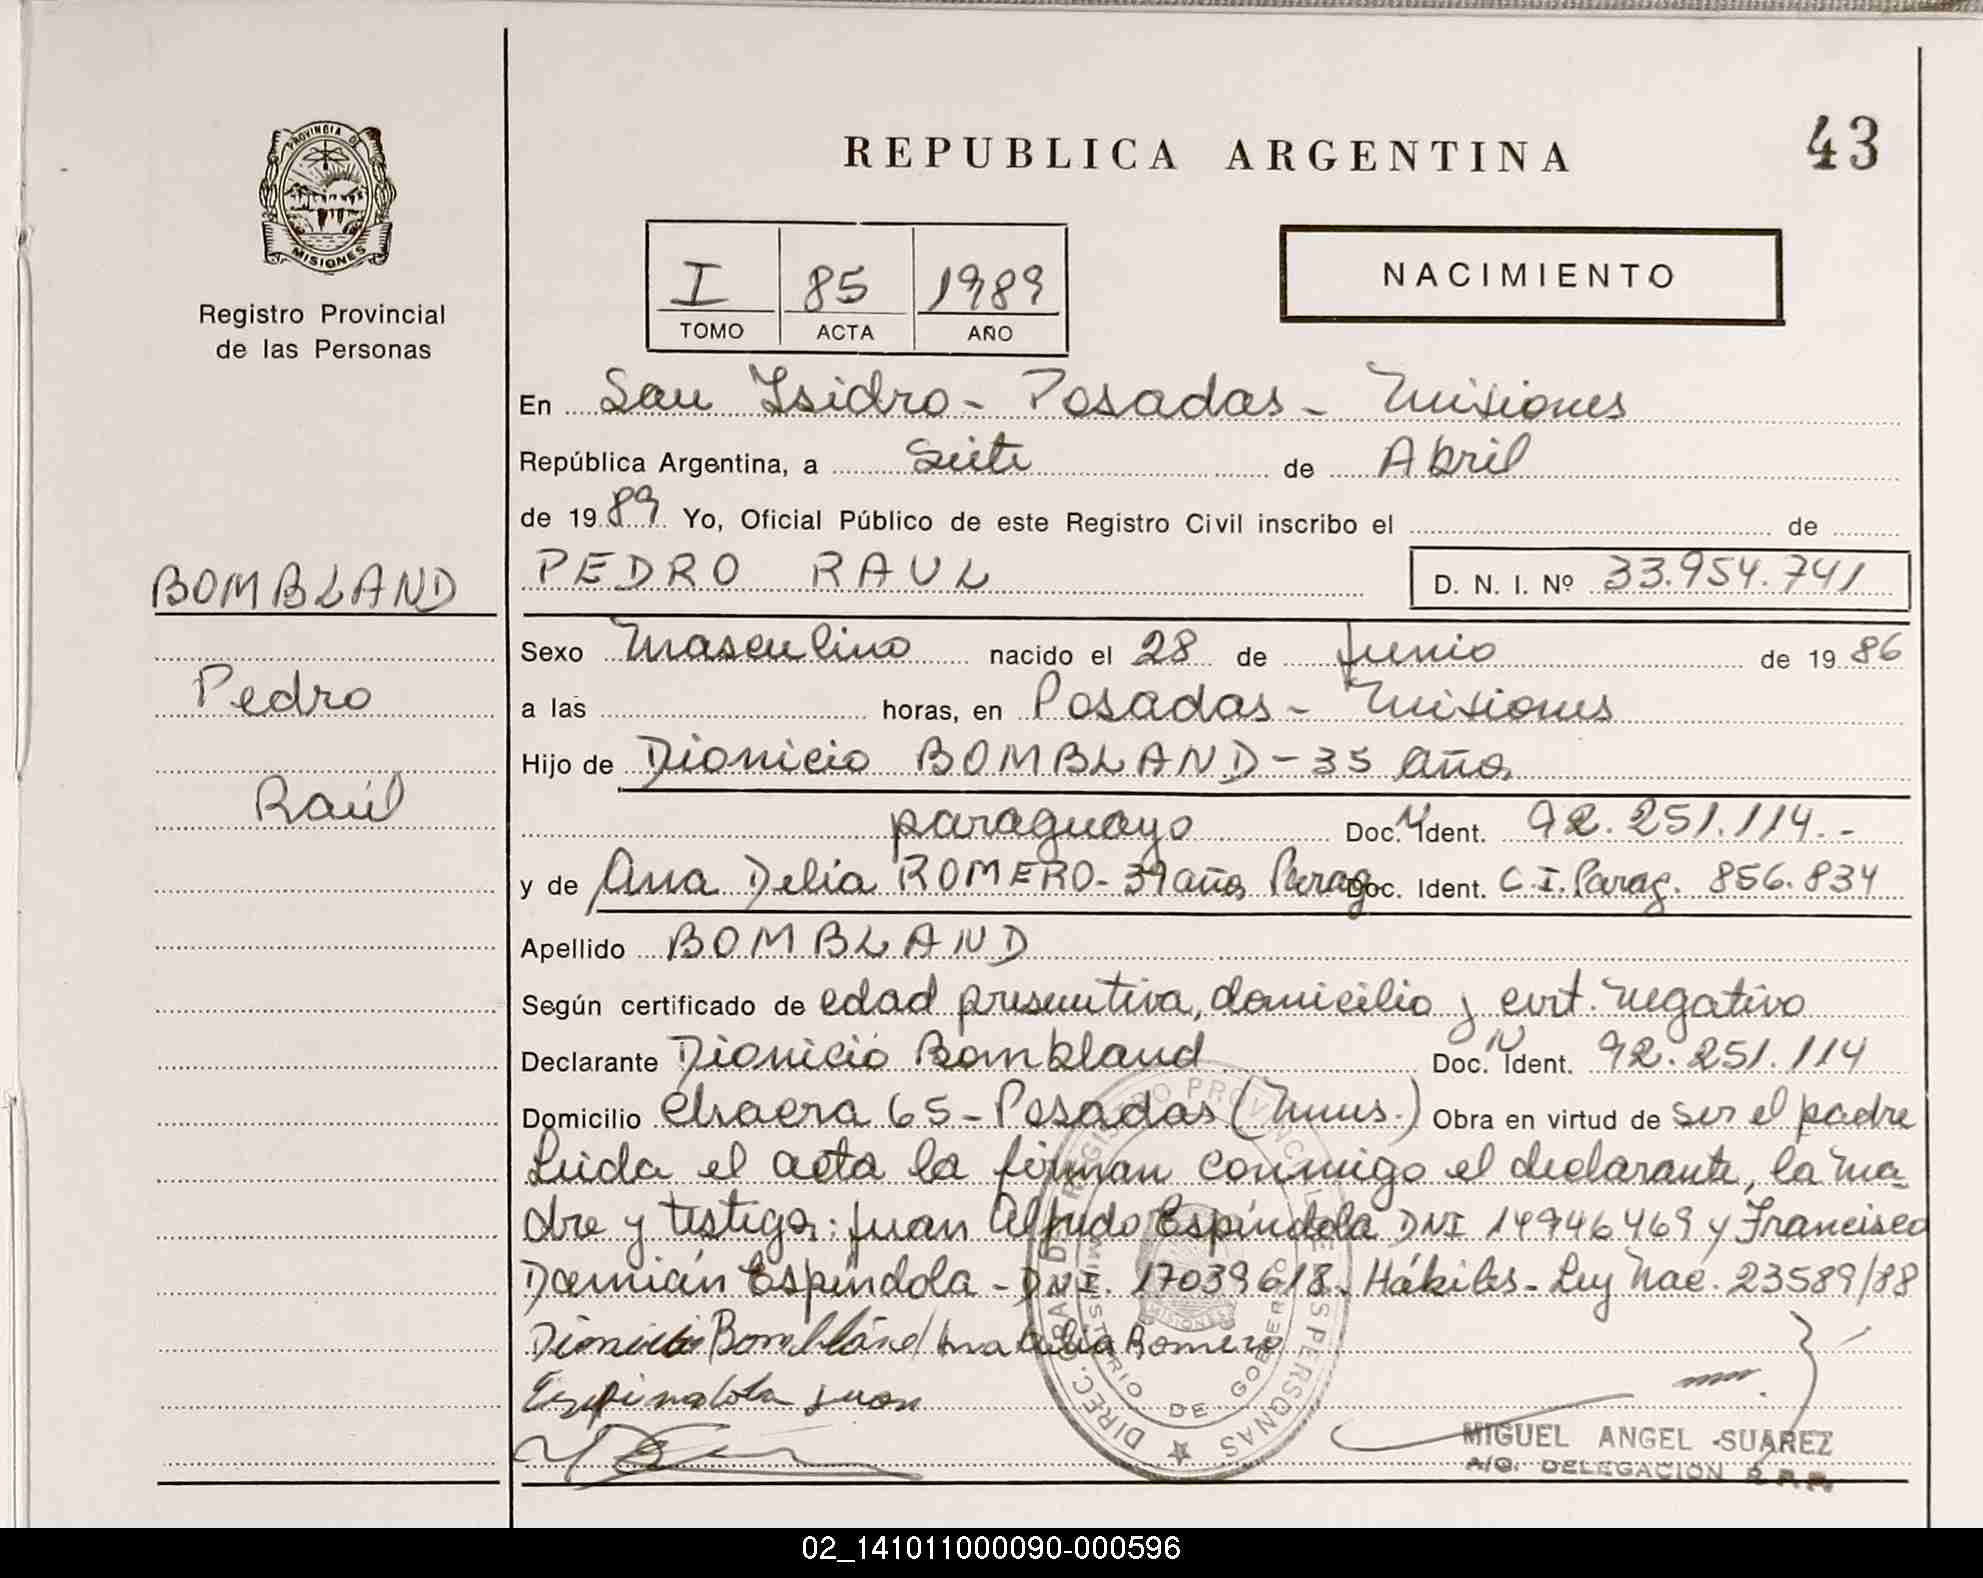 PROVINCIA DE
MISIONES
Registro Provincial
de las Personas
BOMBLAND
Pedro
Raúl
REPUBLICA ARGENTINA
43
I 85 1989
TOMO ACTA AÑO
NACIMIENTO
En San Isidro - Posadas - Misiones
República Argentina, a Siete de Abril
de 1989 Yo, Oficial Público de este Registro Civil inscribo el de
PEDRO RAUL D. N. I. Nº 33.954.741
Sexo Masculino nacido el 28 de Junio de 1986
a las horas, en Posadas - Misiones
Hijo de Dionicio BOMBLAND - 35 años
paraguayo Doc. N Ident. 92.251.114.-
y de Ana Delia ROMERO - 39 años Parag. Doc. Ident. C.I. Parag. 856.834
Apellido BOMBLAND
Según certificado de edad presuntiva, domicilio y cert. negativo
Declarante Dionicio Bombland Doc. N Ident. 92.251.114
Domicilio Chacra 65 - Posadas (Mnes.) Obra en virtud de ser el padre
Leida el acta la firman conmigo el declarante, la ma-
dre y testigos: Juan Alfredo Espíndola DNI 14946469 y Francisco
Damián Espíndola - DNI. 17039618. Hábiles - Ley Nac. 23589/88
Dionicio Bombland Ana Delia Romero
Espindola Juan
DIREC. GRAL. DE REGISTRO PROVINCIAL DE LAS PERSONAS
MINISTERIO DE GOBIERNO
MISIONES
MIGUEL ANGEL SUAREZ
A/C. DELEGACION R.P.P.
02_141011000090-000596